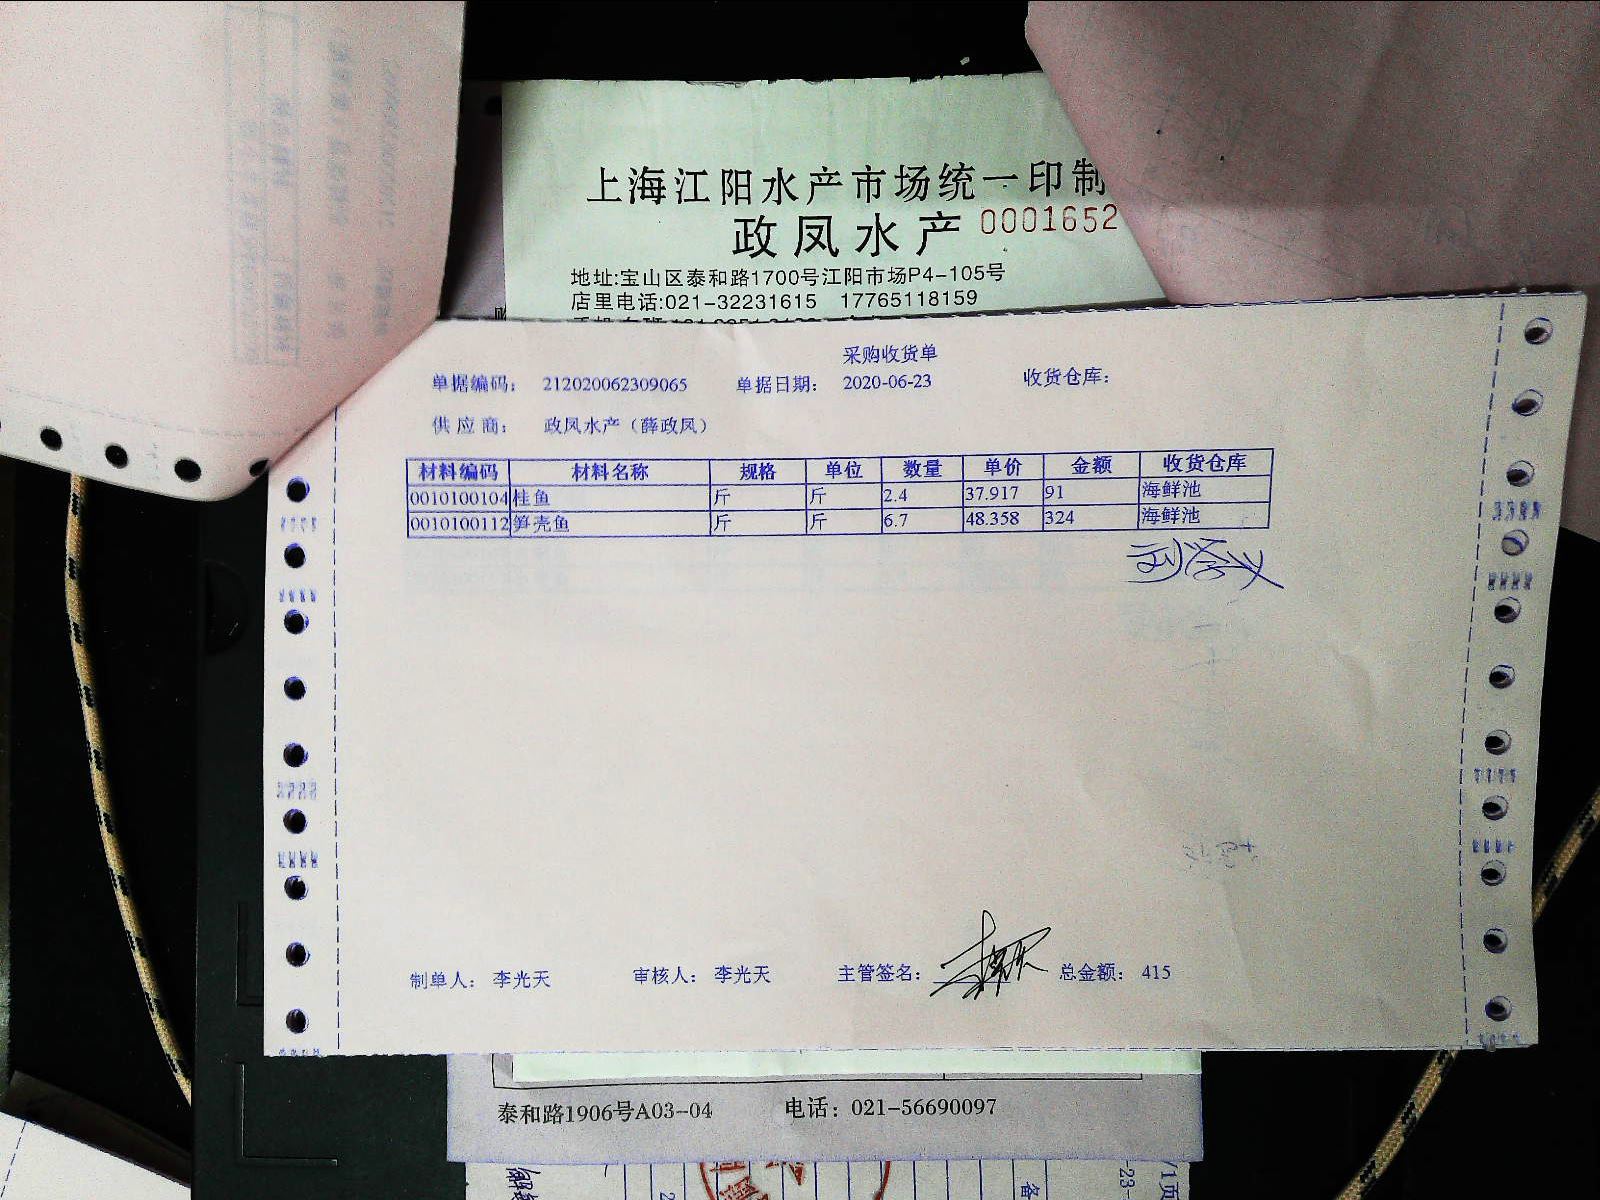 上海江阳水产市场统一印制
政凤水产 0001652
地址:宝山区泰和路1700号江阳市场P4-105号
店里电话:021-32231615 17765118159
采购收货单
单据编码: 212020062309065 单据日期: 2020-06-23 收货仓库:
供应商: 政凤水产（薛政凤）
材料编码 材料名称 规格 单位 数量 单价 金额 收货仓库
0010100104 桂鱼 斤 斤 2.4 37.917 91 海鲜池
0010100112 笋壳鱼 斤 斤 6.7 48.358 324 海鲜池
制单人: 李光天 审核人: 李光天 主管签名: 总金额: 415
泰和路1906号A03-04 电话: 021-56690097